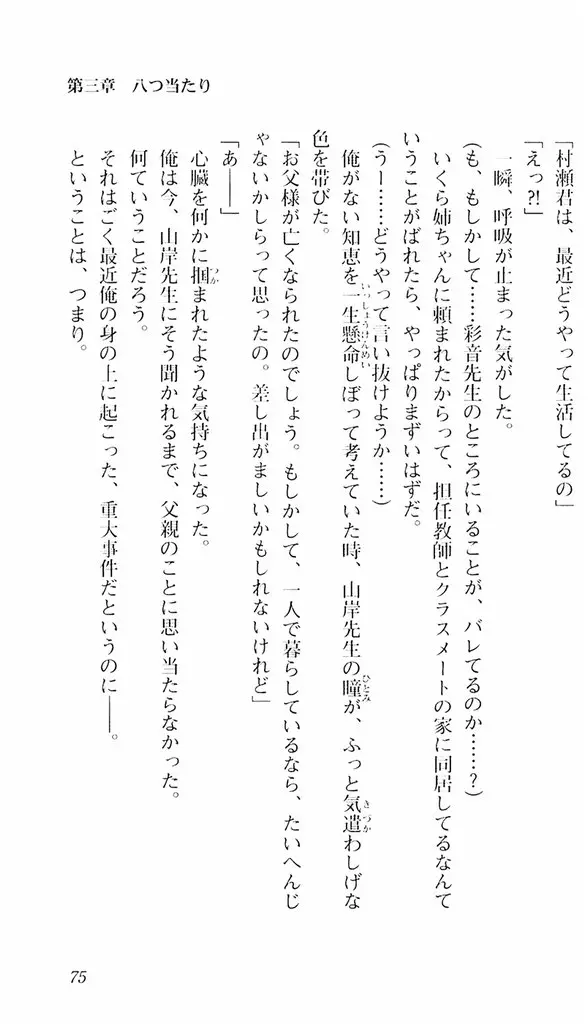 第三章　八つ当たり
「村瀬君は、最近どうやって生活してるの」
「えっ?!」
一瞬、呼吸が止まった気がした。
（も、もしかして……彩音先生のところにいることが、バレてるのか……？）
いくら姉ちゃんに頼まれたからって、担任教師とクラスメートの家に同居してるなんて
いうことがばれたら、やっぱりまずいはずだ。
（うー……どうやって言い抜けようか……）
俺がない知恵を一生懸命しぼって考えていた時、山岸先生の瞳が、ふっと気遣わしげな
色を帯びた。
「お父様が亡くなられたのでしょう。もしかして、一人で暮らしているなら、たいへんじ
ゃないかしらって思ったの。差し出がましいかもしれないけれど」
「あ――」
心臓を何かに掴まれたような気持ちになった。
俺は今、山岸先生にそう聞かれるまで、父親のことに思い当たらなかった。
何ていうことだろう。
それはごく最近俺の身の上に起こった、重大事件だというのに――。
ということは、つまり。
75